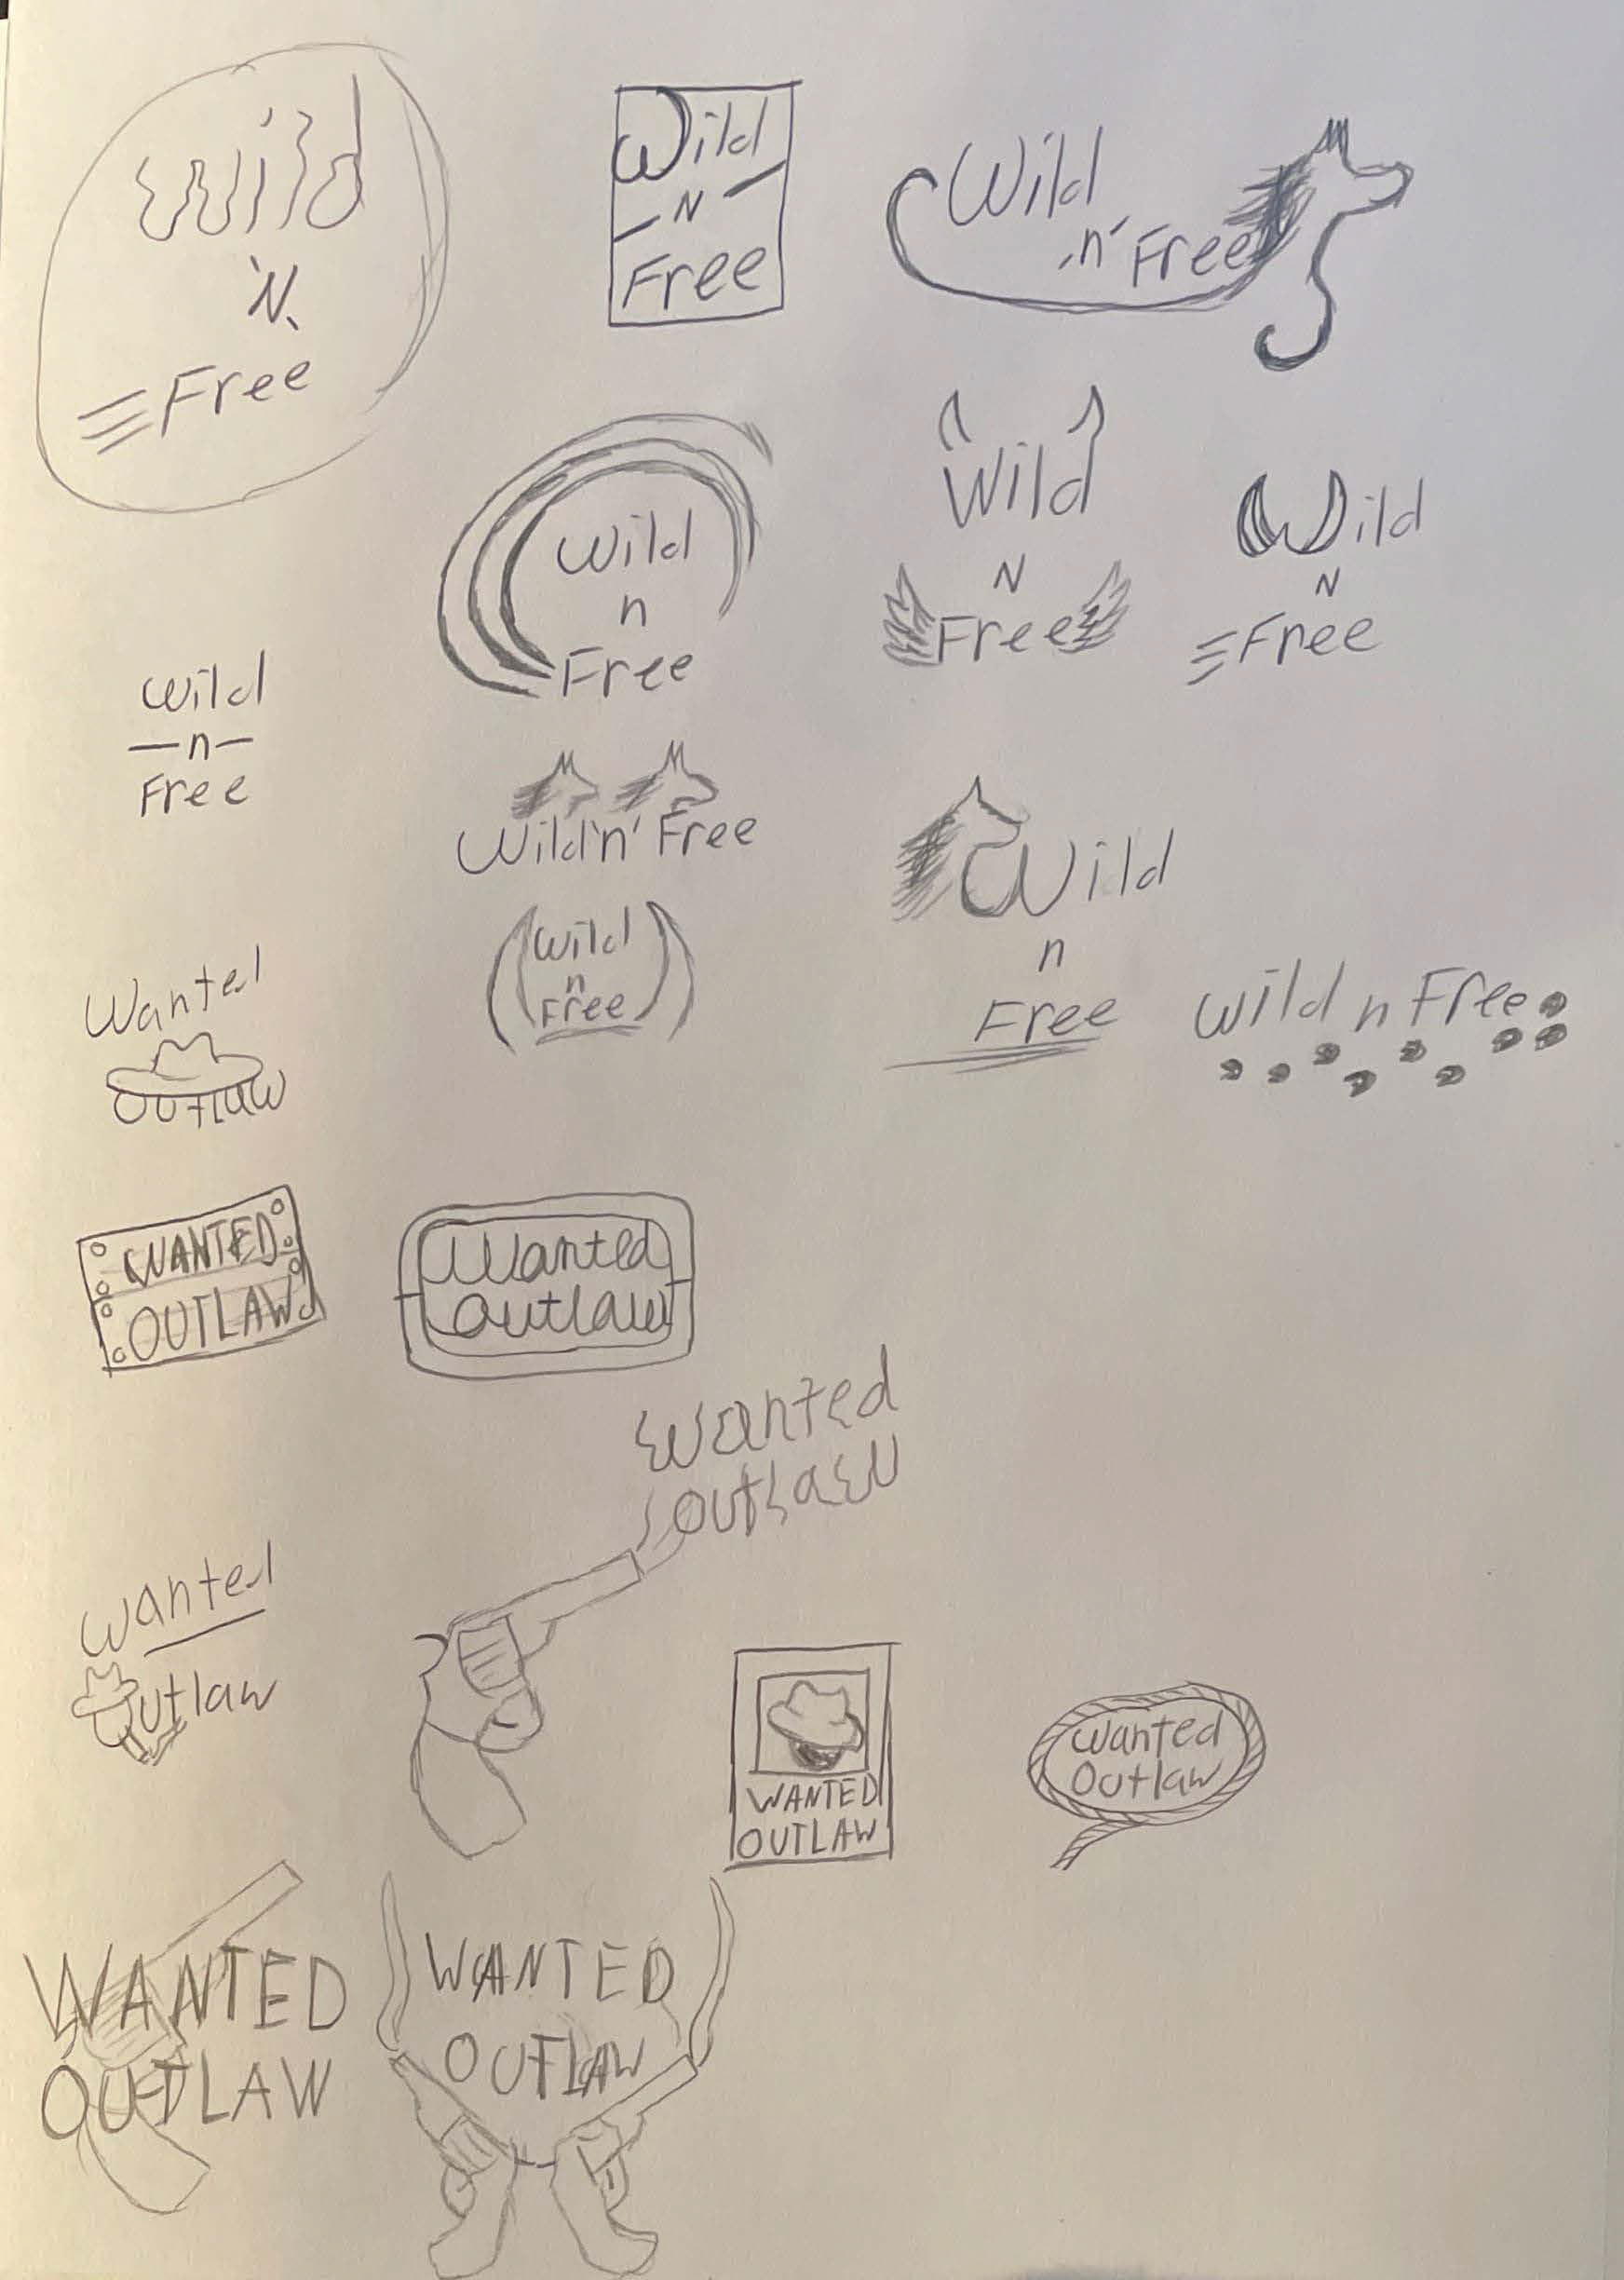 Wild
'N.
Free
Wild
N
Free
Wild
'n' Free
Wild
n
Free
Wild
N
Free
Wild
N
Free
Wild
n
Free
Wild 'n' Free
Wild
n
Free
Wild
n
Free
Wild n Free
Wanted
Outlaw
WANTED
OUTLAW
Wanted
Outlaw
Wanted
Outlaw
Wanted
Outlaw
WANTED
OUTLAW
Wanted
Outlaw
WANTED
OUTLAW
WANTED
OUTLAW